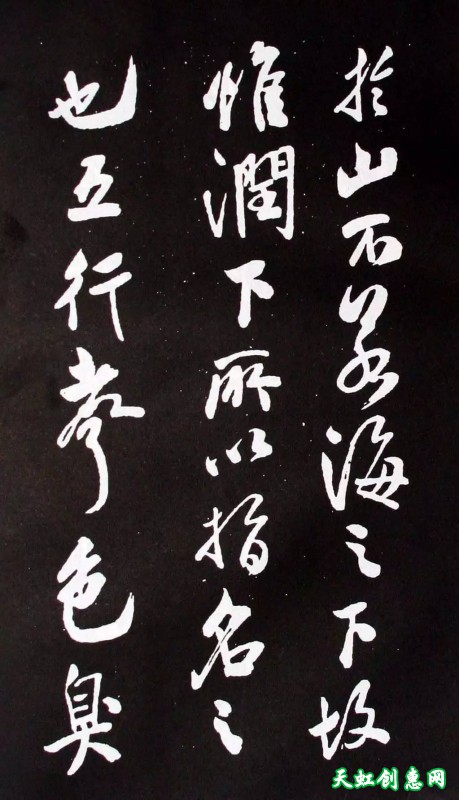 於山石若海之下故
惟潤下所以指名之
也五行聲色臭
天虹创惠网